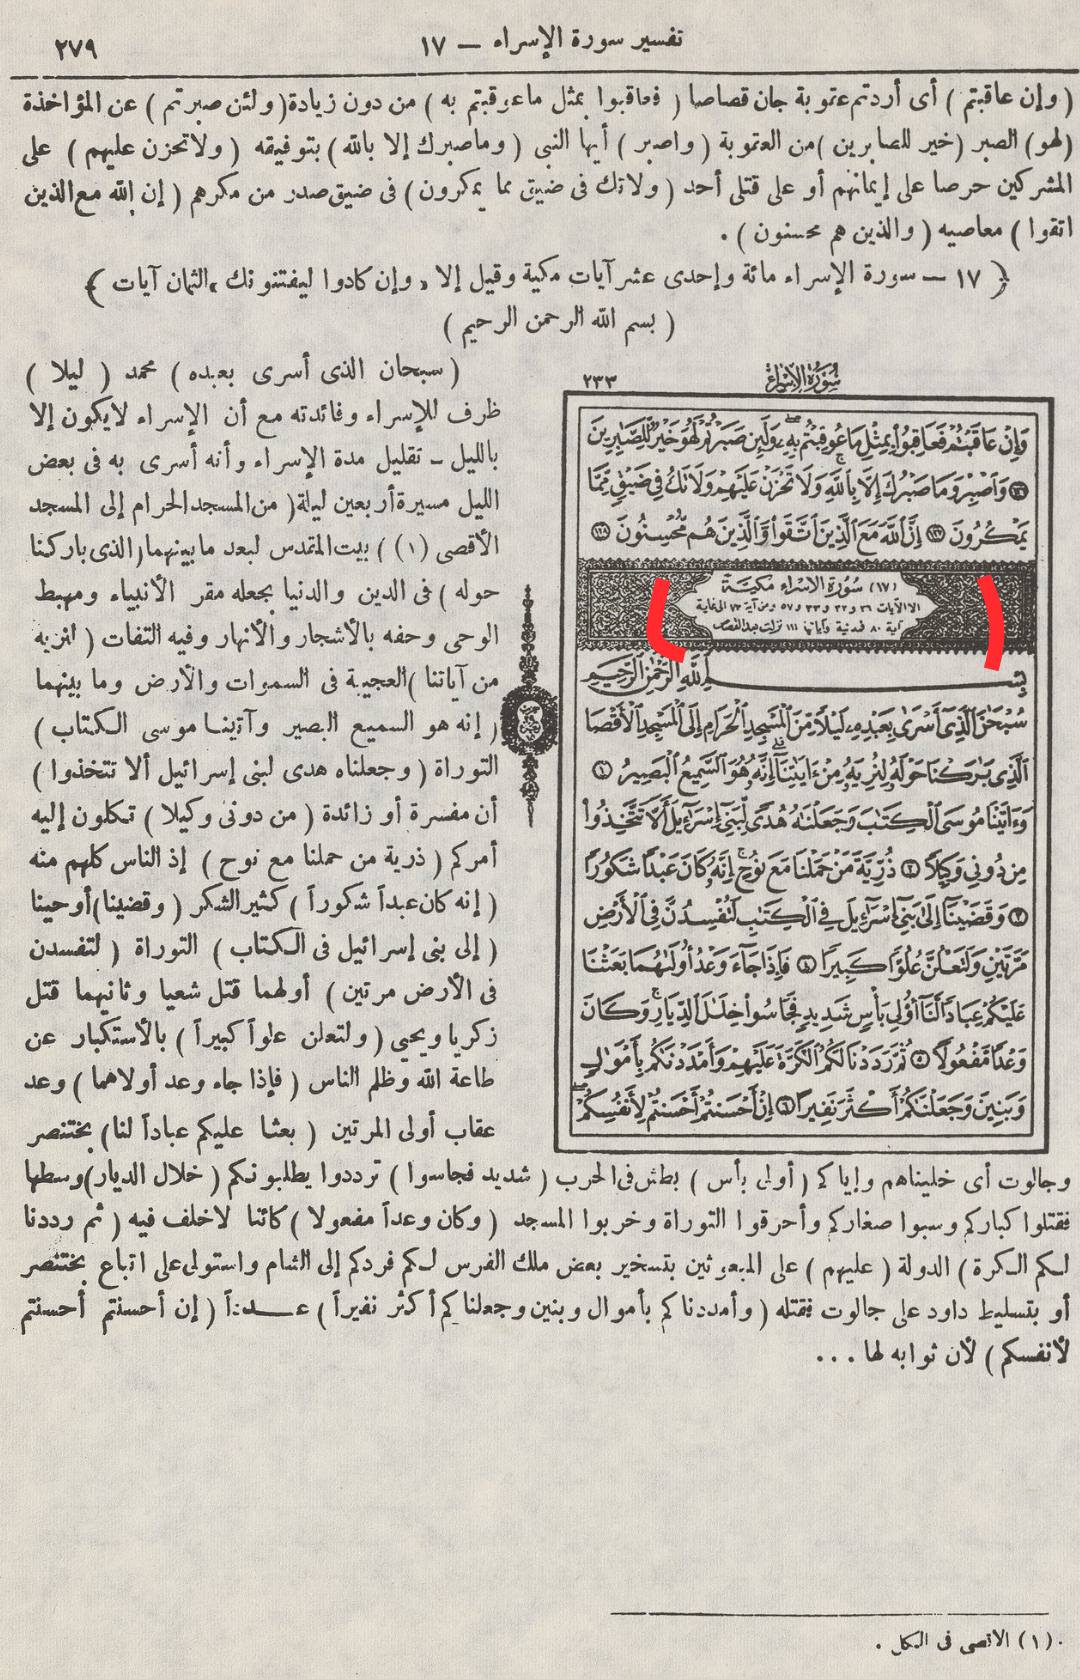 تفسير سورة الإسراء — ١٧
٢٧٩
( وإن عاقبتم ) أى أردتم عقوبة جان قصاصا ( فعاقبوا بمثل ما عوقبتم به ) من دون زيادة ( ولئن صبرتم ) عن المؤاخذة
( لهو ) الصبر ( خير للصابرين ) من العقوبة ( واصبر ) أيها النبى ( وما صبرك إلا بالله ) بتوفيقه ( ولا تحزن عليهم ) على
المشركين حرصا على إيمانهم أو على قتلى أحد ( ولا تك فى ضيق مما يمكرون ) فى ضيق صدر من مكرهم ( إن الله مع الذين
اتقوا ) معاصيه ( والذين هم محسنون ) .
﴿ ١٧ — سورة الإسراء مائة وإحدى عشر آيات مكية وقيل إلا « وإن كادوا ليفتنونك » الثمان آيات ﴾
( بسم الله الرحمن الرحيم )
سُورَةُ الإسْرَاء
٢٣٣
وَإِنْ عَاقَبْتُمْ فَعَاقِبُوا۟ بِمِثْلِ مَا عُوقِبْتُم بِهِۦ وَلَئِن صَبَرْتُمْ لَهُوَ خَيْرٌ لِّلصَّٰبِرِينَ
١٢٦ وَٱصْبِرْ وَمَا صَبْرُكَ إِلَّا بِٱللَّهِ وَلَا تَحْزَنْ عَلَيْهِمْ وَلَا تَكُ فِى ضَيْقٍ مِّمَّا
يَمْكُرُونَ ١٢٧ إِنَّ ٱللَّهَ مَعَ ٱلَّذِينَ ٱتَّقَوا۟ وَّٱلَّذِينَ هُم مُّحْسِنُونَ ١٢٨
(١٧) سُورَةُ الإِسْرَاء مَكِيَّة
الا الآيات ٢٦ و ٣٢ و ٣٣ و ٥٧ ومن آية ٧٣ الى غاية
آية ٨٠ فمدنية وآياتها ١١١ نزلت بعد القصص
بِسْمِ ٱللَّهِ ٱلرَّحْمَٰنِ ٱلرَّحِيمِ
سُبْحَٰنَ ٱلَّذِىٓ أَسْرَىٰ بِعَبْدِهِۦ لَيْلًا مِّنَ ٱلْمَسْجِدِ ٱلْحَرَامِ إِلَى ٱلْمَسْجِدِ ٱلْأَقْصَا
ٱلَّذِى بَٰرَكْنَا حَوْلَهُۥ لِنُرِيَهُۥ مِنْ ءَايَٰتِنَآ إِنَّهُۥ هُوَ ٱلسَّمِيعُ ٱلْبَصِيرُ ١
وَءَاتَيْنَا مُوسَى ٱلْكِتَٰبَ وَجَعَلْنَٰهُ هُدًى لِّبَنِىٓ إِسْرَٰٓءِيلَ أَلَّا تَتَّخِذُوا۟
مِن دُونِى وَكِيلًا ٢ ذُرِّيَّةَ مَنْ حَمَلْنَا مَعَ نُوحٍ إِنَّهُۥ كَانَ عَبْدًا شَكُورًا
٣ وَقَضَيْنَآ إِلَىٰ بَنِىٓ إِسْرَٰٓءِيلَ فِى ٱلْكِتَٰبِ لَتُفْسِدُنَّ فِى ٱلْأَرْضِ
مَرَّتَيْنِ وَلَتَعْلُنَّ عُلُوًّا كَبِيرًا ٤ فَإِذَا جَآءَ وَعْدُ أُولَىٰهُمَا بَعَثْنَا
عَلَيْكُمْ عِبَادًا لَّنَآ أُو۟لِى بَأْسٍ شَدِيدٍ فَجَاسُوا۟ خِلَٰلَ ٱلدِّيَارِ وَكَانَ
وَعْدًا مَّفْعُولًا ٥ ثُمَّ رَدَدْنَا لَكُمُ ٱلْكَرَّةَ عَلَيْهِمْ وَأَمْدَدْنَٰكُم بِأَمْوَٰلٍ
وَبَنِينَ وَجَعَلْنَٰكُمْ أَكْثَرَ نَفِيرًا ٦ إِنْ أَحْسَنتُمْ أَحْسَنتُمْ لِأَنفُسِكُمْ
( سبحان الذى أسرى بعبده ) محمد ( ليلا )
ظرف للإسراء وفائدته مع أن الإسراء لا يكون إلا
بالليل - تقليل مدة الإسراء وأنه أسرى به فى بعض
الليل مسيرة أربعين ليلة ( من المسجد الحرام إلى المسجد
الأقصى (١) ) بيت المقدس لبعد ما بينهما ( الذى باركنا
حوله ) فى الدين والدنيا بجعله مقر الأنبياء ومهبط
الوحى وحفه بالأشجار والأنهار وفيه التفات ( لنريه
من آياتنا ) العجيبة فى السموات والأرض وما بينهما
( إنه هو السميع البصير وآتينا موسى الكتاب )
التوراة ( وجعلناه هدى لبنى إسرائيل ألا تتخذوا )
أن مفسرة أو زائدة ( من دونى وكيلا ) تكلون إليه
أمركم ( ذرية من حملنا مع نوح ) إذ الناس كلهم منه
( إنه كان عبداً شكوراً ) كثير الشكر ( وقضينا ) أوحينا
( إلى بنى إسرائيل فى الكتاب ) التوراة ( لتفسدن
فى الأرض مرتين ) أولهما قتل شعيا وثانيهما قتل
زكريا ويحيى ( ولتعلن علواً كبيراً ) بالأستكبار عن
طاعة الله وظلم الناس ( فإذا جاء وعد أولاهما ) وعد
عقاب أولى المرتين ( بعثنا عليكم عباداً لنا ) بختنصر
وجالوت أى خليناهم وإياكم ( أولى بأس ) بطش فى الحرب ( شديد فجاسوا ) ترددوا يطلبونكم ( خلال الديار ) وسطها
فقتلوا كباركم وسبوا صغاركم وأحرقوا التوراة وخربوا المسجد ( وكان وعداً مفعولا ) كائنا لا خلف فيه ( ثم رددنا
لكم الكرة ) الدولة ( عليهم ) على المبعوثين بتسخير بعض ملك الفرس لكم فردكم إلى الشام واستولى على اتباع بختنصر
أو بتسليط داود على جالوت فقتله ( وأمددناكم بأموال وبنين وجعلناكم أكثر نفيراً ) عدداً ( إن أحسنتم أحسنتم
لأنفسكم ) لأن ثوابه لها ...
(١) الأقصى فى الكل .